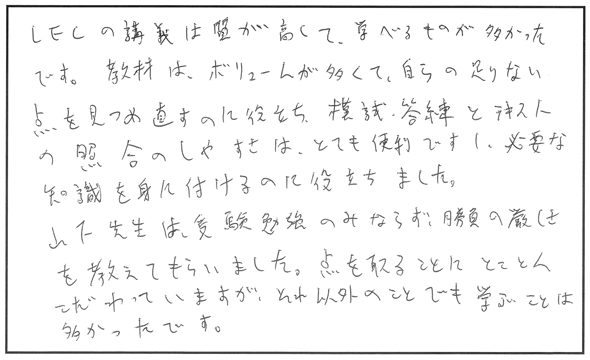 LECの講義は質が高くて、学べるものが多かった
です。教材は、ボリュームが多くて、自らの足りない
点を見つめ直すのに役立ち、模試・答練とテキスト
の照合のしやすさは、とても便利ですし、必要な
知識を身に付けるのに役立ちました。
山下先生は、受験勉強のみならず、勝負の厳しさ
を教えてもらいました。点を取ることにとことん
こだわっていますが、それ以外のことでも学ぶことは
多かったです。